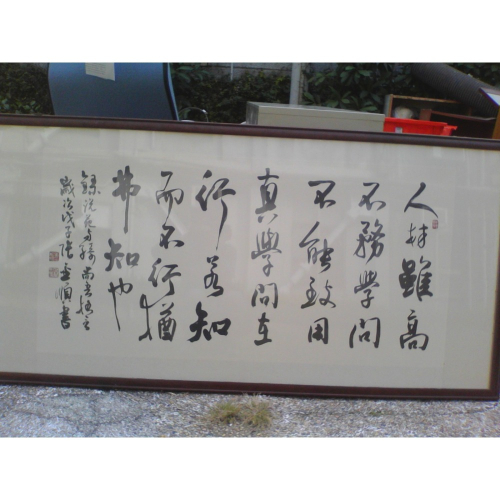 人材雖高
不務學問
不能致用
真學問在
行若知
而不行猶
弗知也
錄說苑
歲次戊子張順書